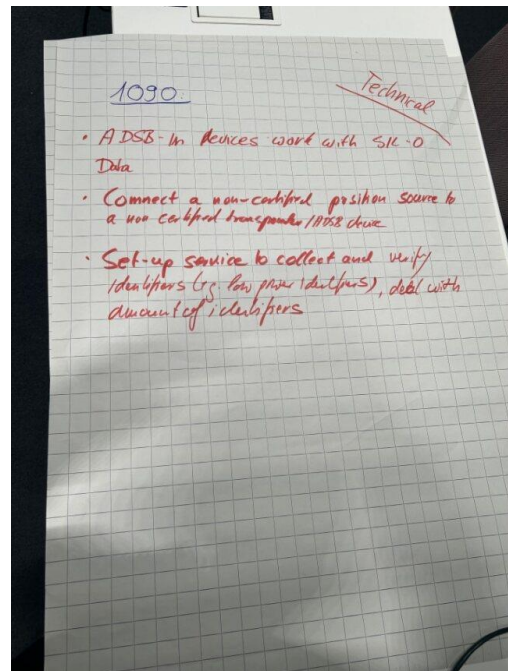 1090
Technical
• ADSB-In devices work with SIL-0
Data
• Connect a non-certified position source to
a non certified transponder/ADSB device
• Set-up service to collect and verify
identifiers (e.g. low power identifiers), deal with
amount of identifiers